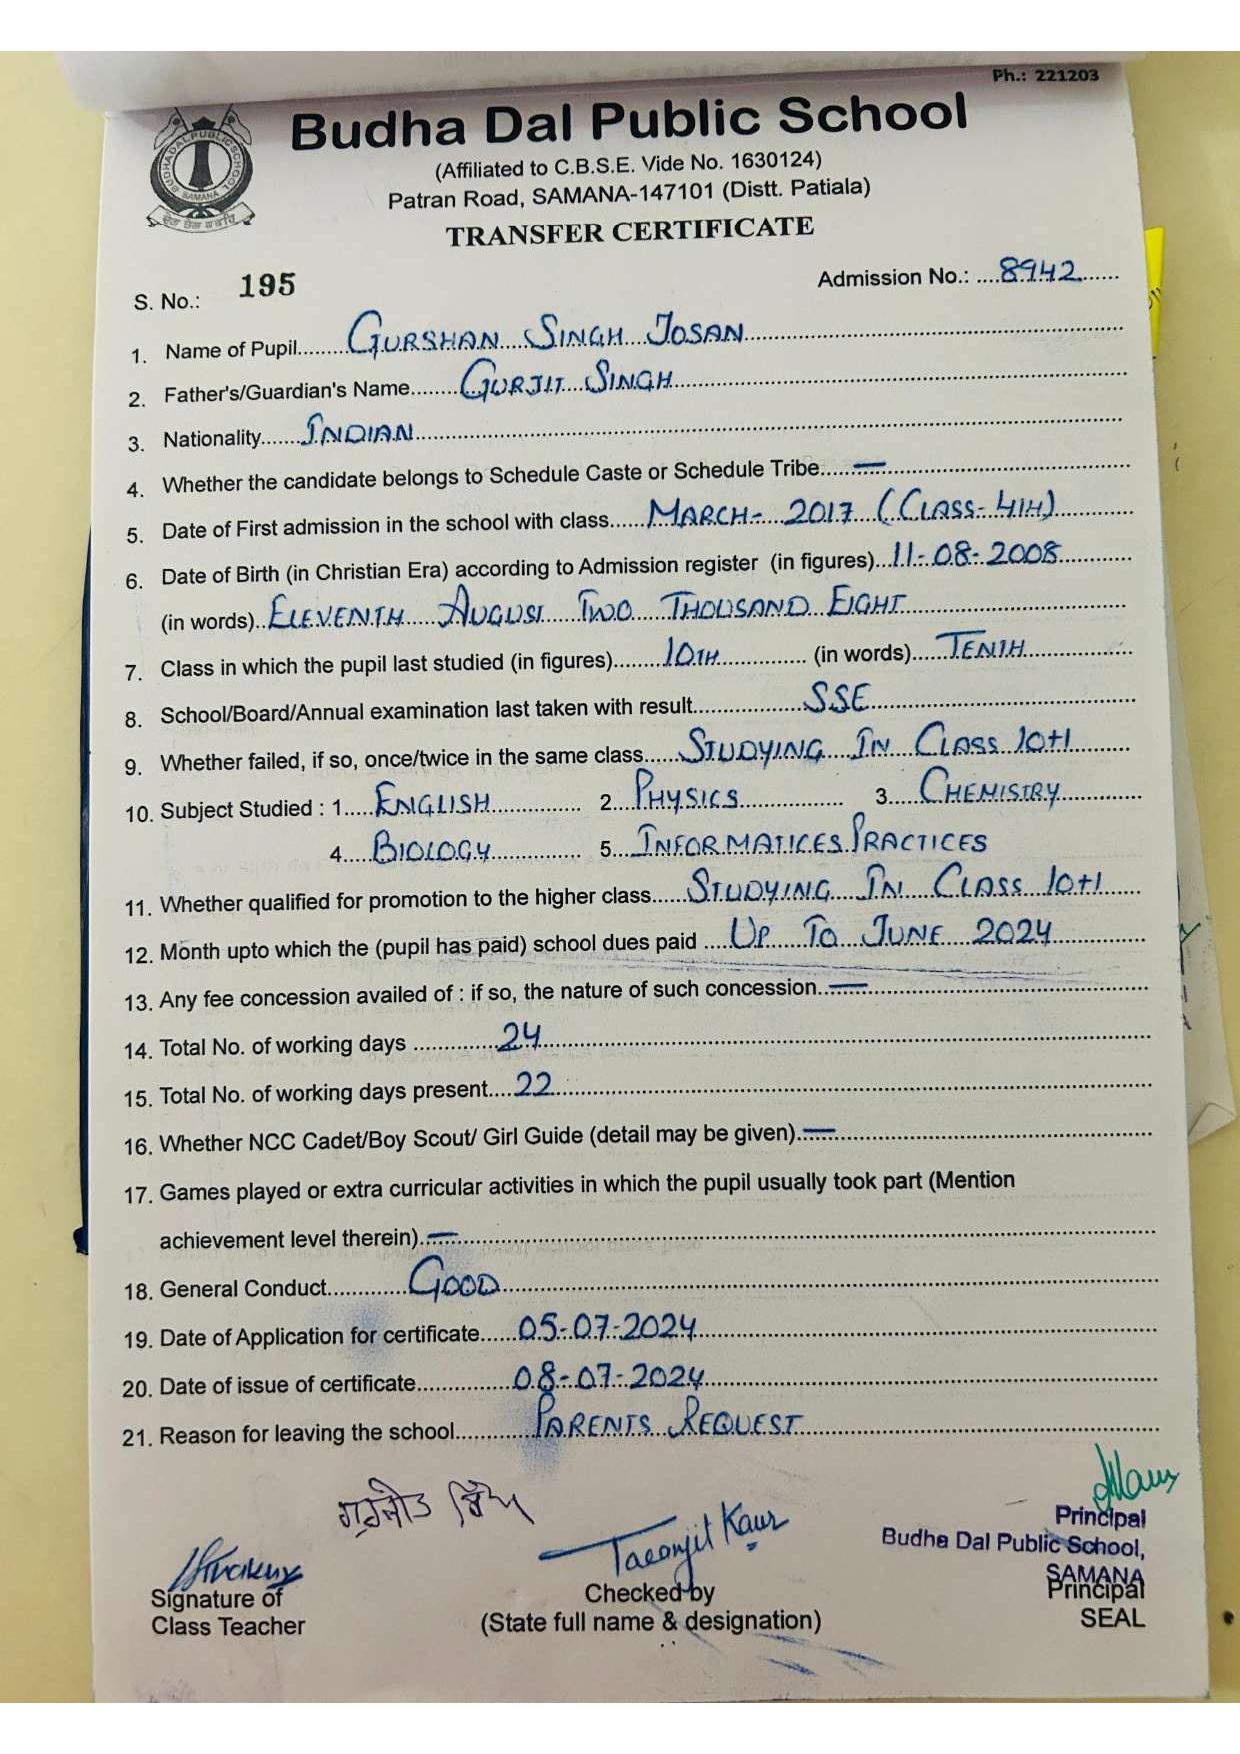 Ph.: 221203
Budha Dal Public School
(Affiliated to C.B.S.E. Vide No. 1630124)
Patran Road, SAMANA-147101 (Distt. Patiala)
BUDHA DAL PUBLIC SCHOOL
SAMANA
TRANSFER CERTIFICATE
S. No.: 195 Admission No.: 8942
1. Name of Pupil GURSHAN SINGH JOSAN
2. Father's/Guardian's Name GURJIT SINGH
3. Nationality INDIAN
4. Whether the candidate belongs to Schedule Caste or Schedule Tribe —
5. Date of First admission in the school with class MARCH- 2017 (CLASS-4TH)
6. Date of Birth (in Christian Era) according to Admission register (in figures) 11-08-2008
(in words) ELEVENTH AUGUST TWO THOUSAND EIGHT
7. Class in which the pupil last studied (in figures) 10TH (in words) TENTH
8. School/Board/Annual examination last taken with result SSE
9. Whether failed, if so, once/twice in the same class STUDYING IN CLASS 10+1
10. Subject Studied : 1 ENGLISH 2 PHYSICS 3 CHEMISTRY
4 BIOLOGY 5 INFORMATICES PRACTICES
11. Whether qualified for promotion to the higher class STUDYING IN CLASS 10+1
12. Month upto which the (pupil has paid) school dues paid UP TO JUNE 2024
13. Any fee concession availed of : if so, the nature of such concession —
14. Total No. of working days 24
15. Total No. of working days present 22
16. Whether NCC Cadet/Boy Scout/ Girl Guide (detail may be given) —
17. Games played or extra curricular activities in which the pupil usually took part (Mention
achievement level therein) —
18. General Conduct GOOD
19. Date of Application for certificate 05-07-2024
20. Date of issue of certificate 08-07-2024
21. Reason for leaving the school PARENTS REQUEST
ਗੁਰਜੀਤ ਸਿੰਘ
Taranjit Kaur
Principal
Budha Dal Public School,
SAMANA
Signature of
Class Teacher
Checked by
(State full name & designation)
Principal
SEAL